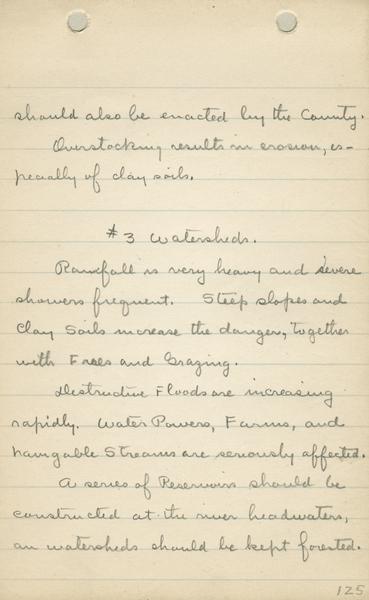 should also be enacted by the County.
Overstocking results in erosion, es-
pecially of clay soils.
#3 Watersheds.
Rainfall is very heavy and severe
showers frequent. Steep slopes and
Clay Soils increase the danger, together
with Fires and Grazing.
Destructive Floods are increasing
rapidly. Water Powers, Farms, and
navigable Streams are seriously affected.
A series of Reservoirs should be
constructed at the river headwaters,
an watersheds should be kept forested.
125